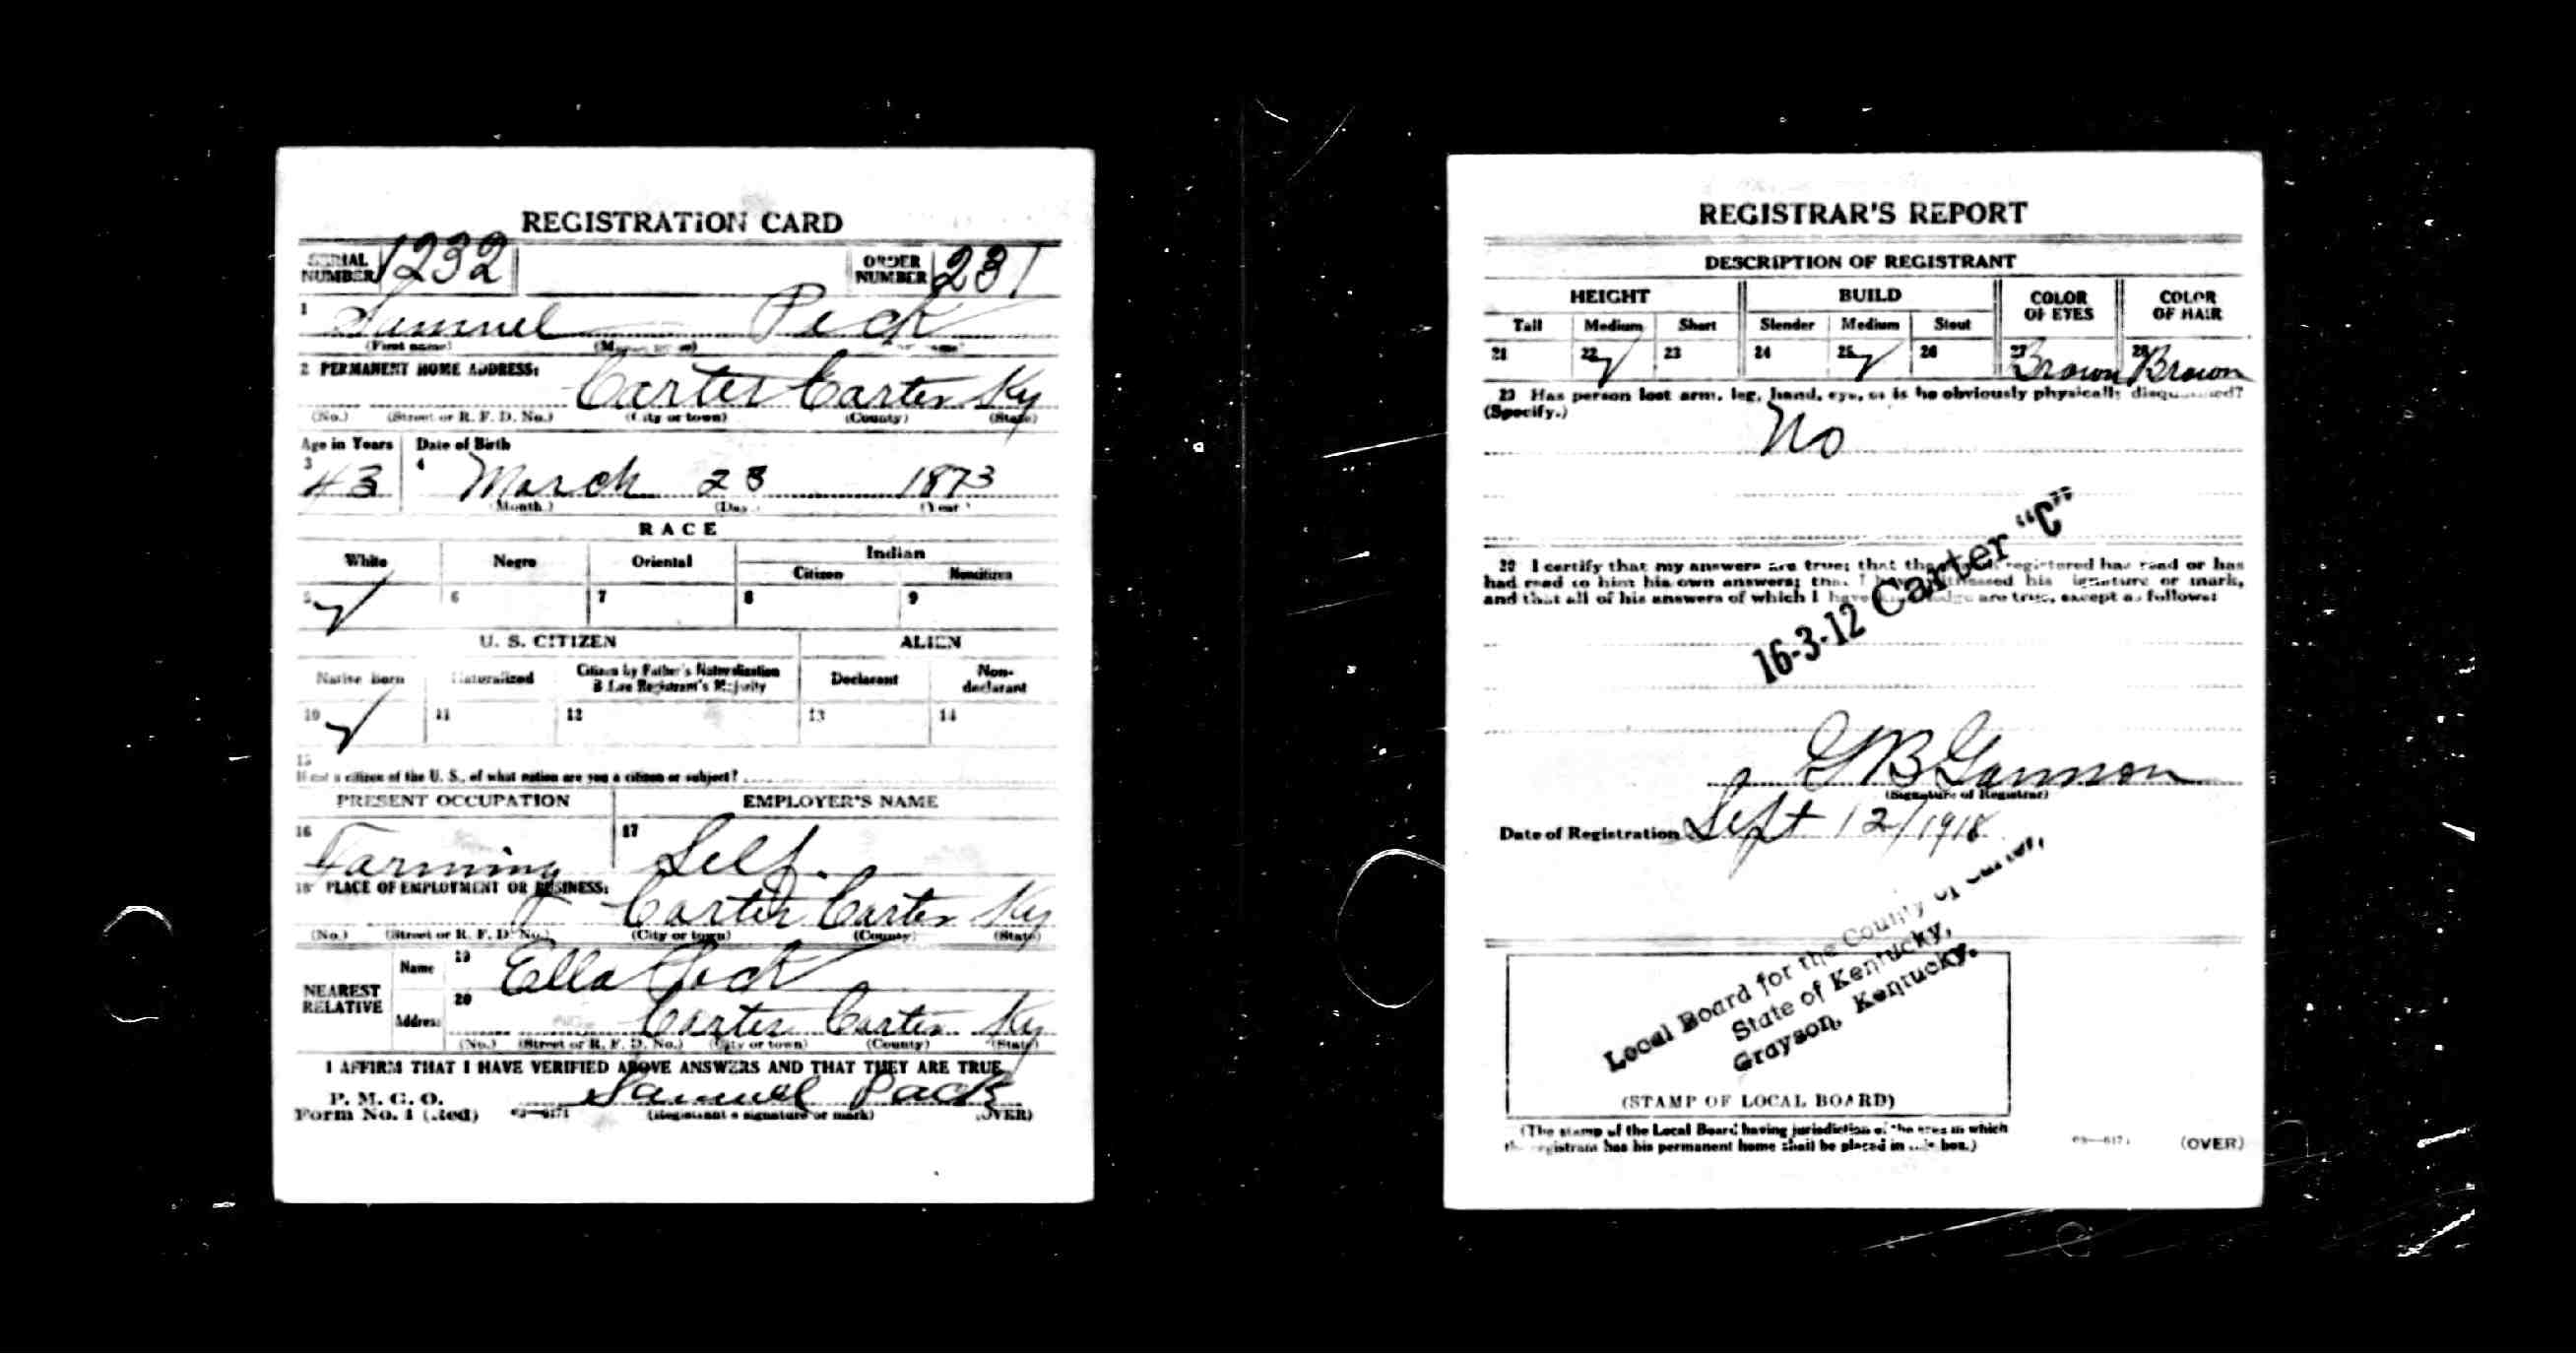 REGISTRATION CARD
SERIAL NUMBER 1232 ORDER NUMBER 231
1 Samuel Peck
(First name)
2 PERMANENT HOME ADDRESS:
Carter Carter Ky
(No.) (Street or R. F. D. No.) (City or town) (County) (State)
Age in Years Date of Birth
3 43 4 March 23 1873
(Month.) (Day.) (Year)
RACE
White Negro Oriental Indian
Citizen Noncitizen
5 ✓ 6 7 8 9
U. S. CITIZEN ALIEN
Native Born Naturalized Citizen by Father's Naturalization Before Registrant's Majority Declarant Non-declarant
10 ✓ 11 12 13 14
15
If not a citizen of the U. S., of what nation are you a citizen or subject?
PRESENT OCCUPATION EMPLOYER'S NAME
16 Farming 17 Self.
18 PLACE OF EMPLOYMENT OR BUSINESS:
Carter Carter Ky
(No.) (Street or R. F. D. No.) (City or town) (County) (State)
NEAREST RELATIVE
Name 19 Ella Peck
Address 20 Carter Carter Ky
(No.) (Street or R. F. D. No.) (City or town) (County) (State)
I AFFIRM THAT I HAVE VERIFIED ABOVE ANSWERS AND THAT THEY ARE TRUE
P. M. G. O.
Form No. 1 (Red) 03—6171 Samuel Pack
(Registrant's signature or mark) (OVER)
REGISTRAR'S REPORT
DESCRIPTION OF REGISTRANT
HEIGHT BUILD COLOR OF EYES COLOR OF HAIR
Tall Medium Short Slender Medium Stout
21 22 ✓ 23 24 25 ✓ 26 27 Brown 28 Brown
29 Has person lost arm, leg, hand, eye, or is he obviously physically disqualified?
(Specify.)
No
30 I certify that my answers are true; that the registered has read or has
had read to him his own answers; that I have witnessed his signature or mark,
and that all of his answers of which I have knowledge are true, except as follows:
16-3-12 Carter "C"
G B Gannon
(Signature of Registrar)
Date of Registration Sept 12/1918
Local Board for the County of Carter,
State of Kentucky,
Grayson, Kentucky.
(STAMP OF LOCAL BOARD)
(The stamp of the Local Board having jurisdiction of the area in which
the registrant has his permanent home shall be placed in this box.)
03—6171 (OVER)